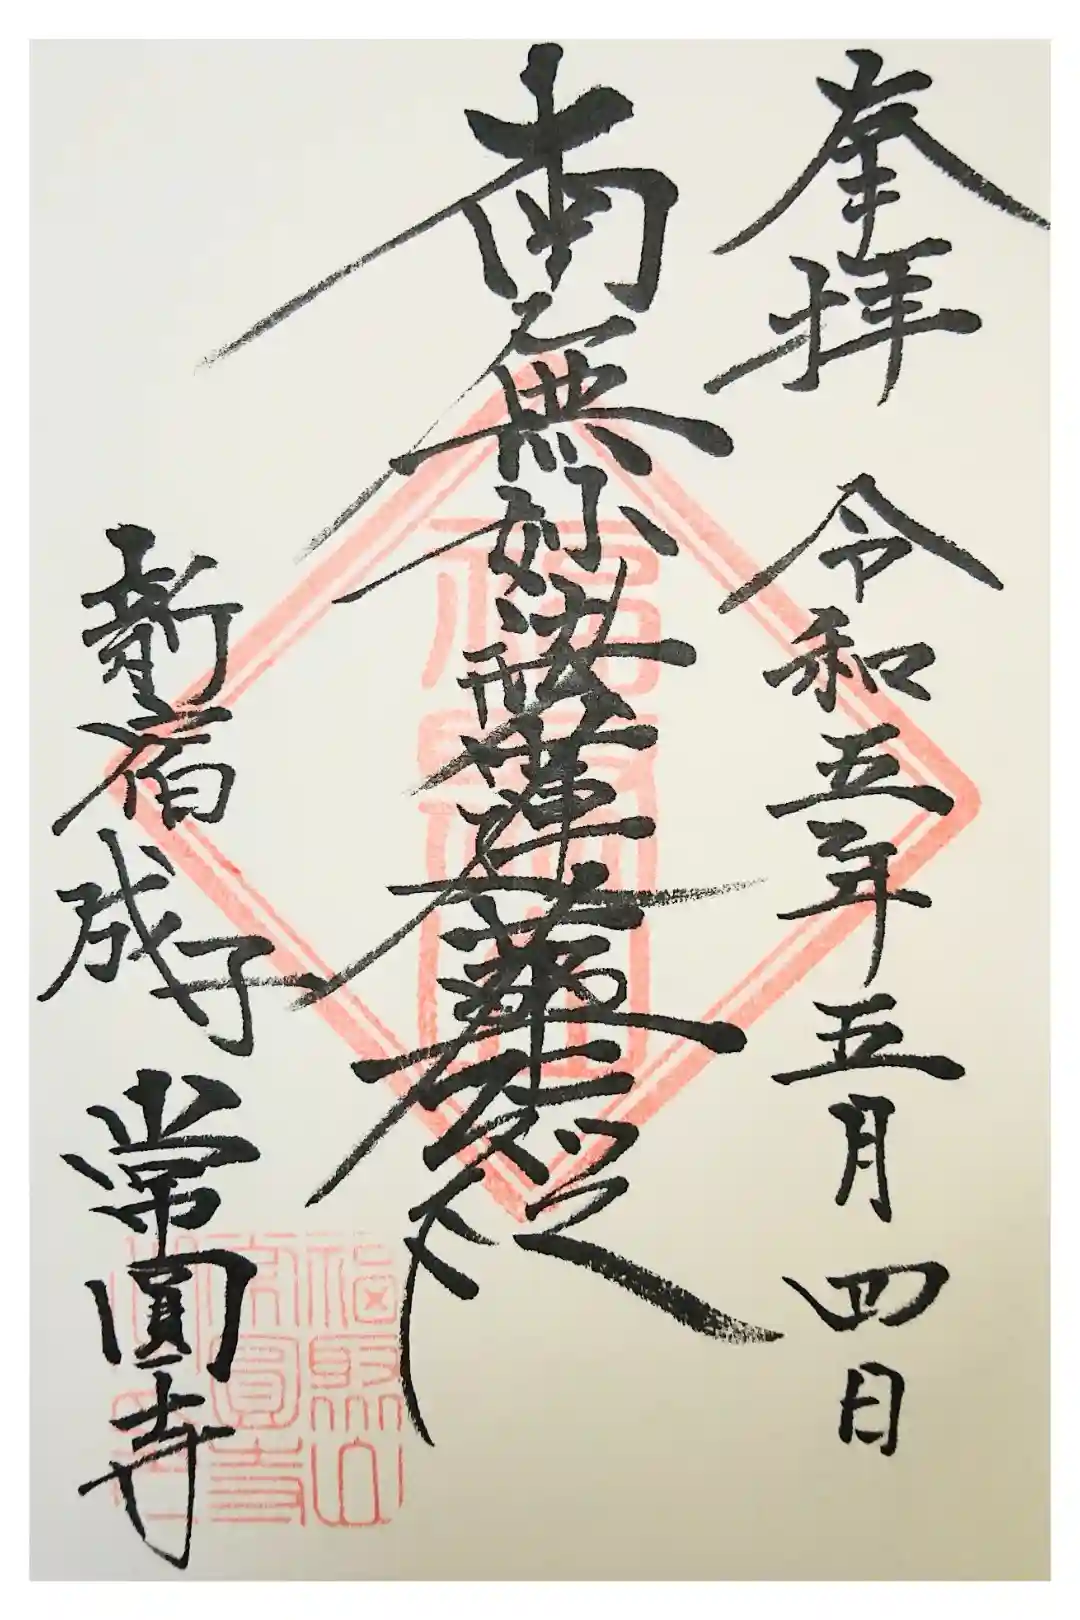 奉拝 令和五年五月四日
南無妙法蓮華経
新宿成子 常圓寺
福照山
常圓寺